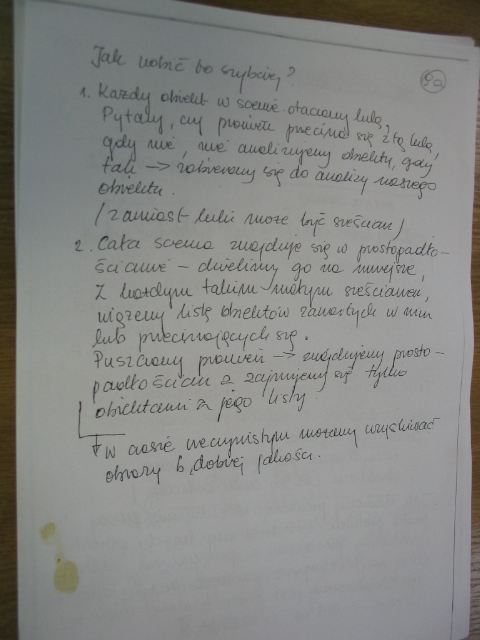 Jak robić to szybciej?
9a
1. Każdy obiekt w scenie otaczamy kulą,
Pytamy, czy promień przecina się z tą kulą,
gdy nie, nie analizujemy obiektu, gdy
tak → zabieramy się do analizy naszego
obiektu.
(zamiast kuli może być sześcian)
2. Cała scena znajduje się w prostopadło-
ścianie – dzielimy go na mniejsze,
Z każdym takim małym sześcianem,
wiążemy listę obiektów zawartych w nim
lub przecinających się.
Puszczamy promień → znajdujemy prosto-
padłościan a zajmujemy się tylko
obiektami z jego listy.
W czasie rzeczywistym możemy uzyskiwać
obrazy b. dobrej jakości.